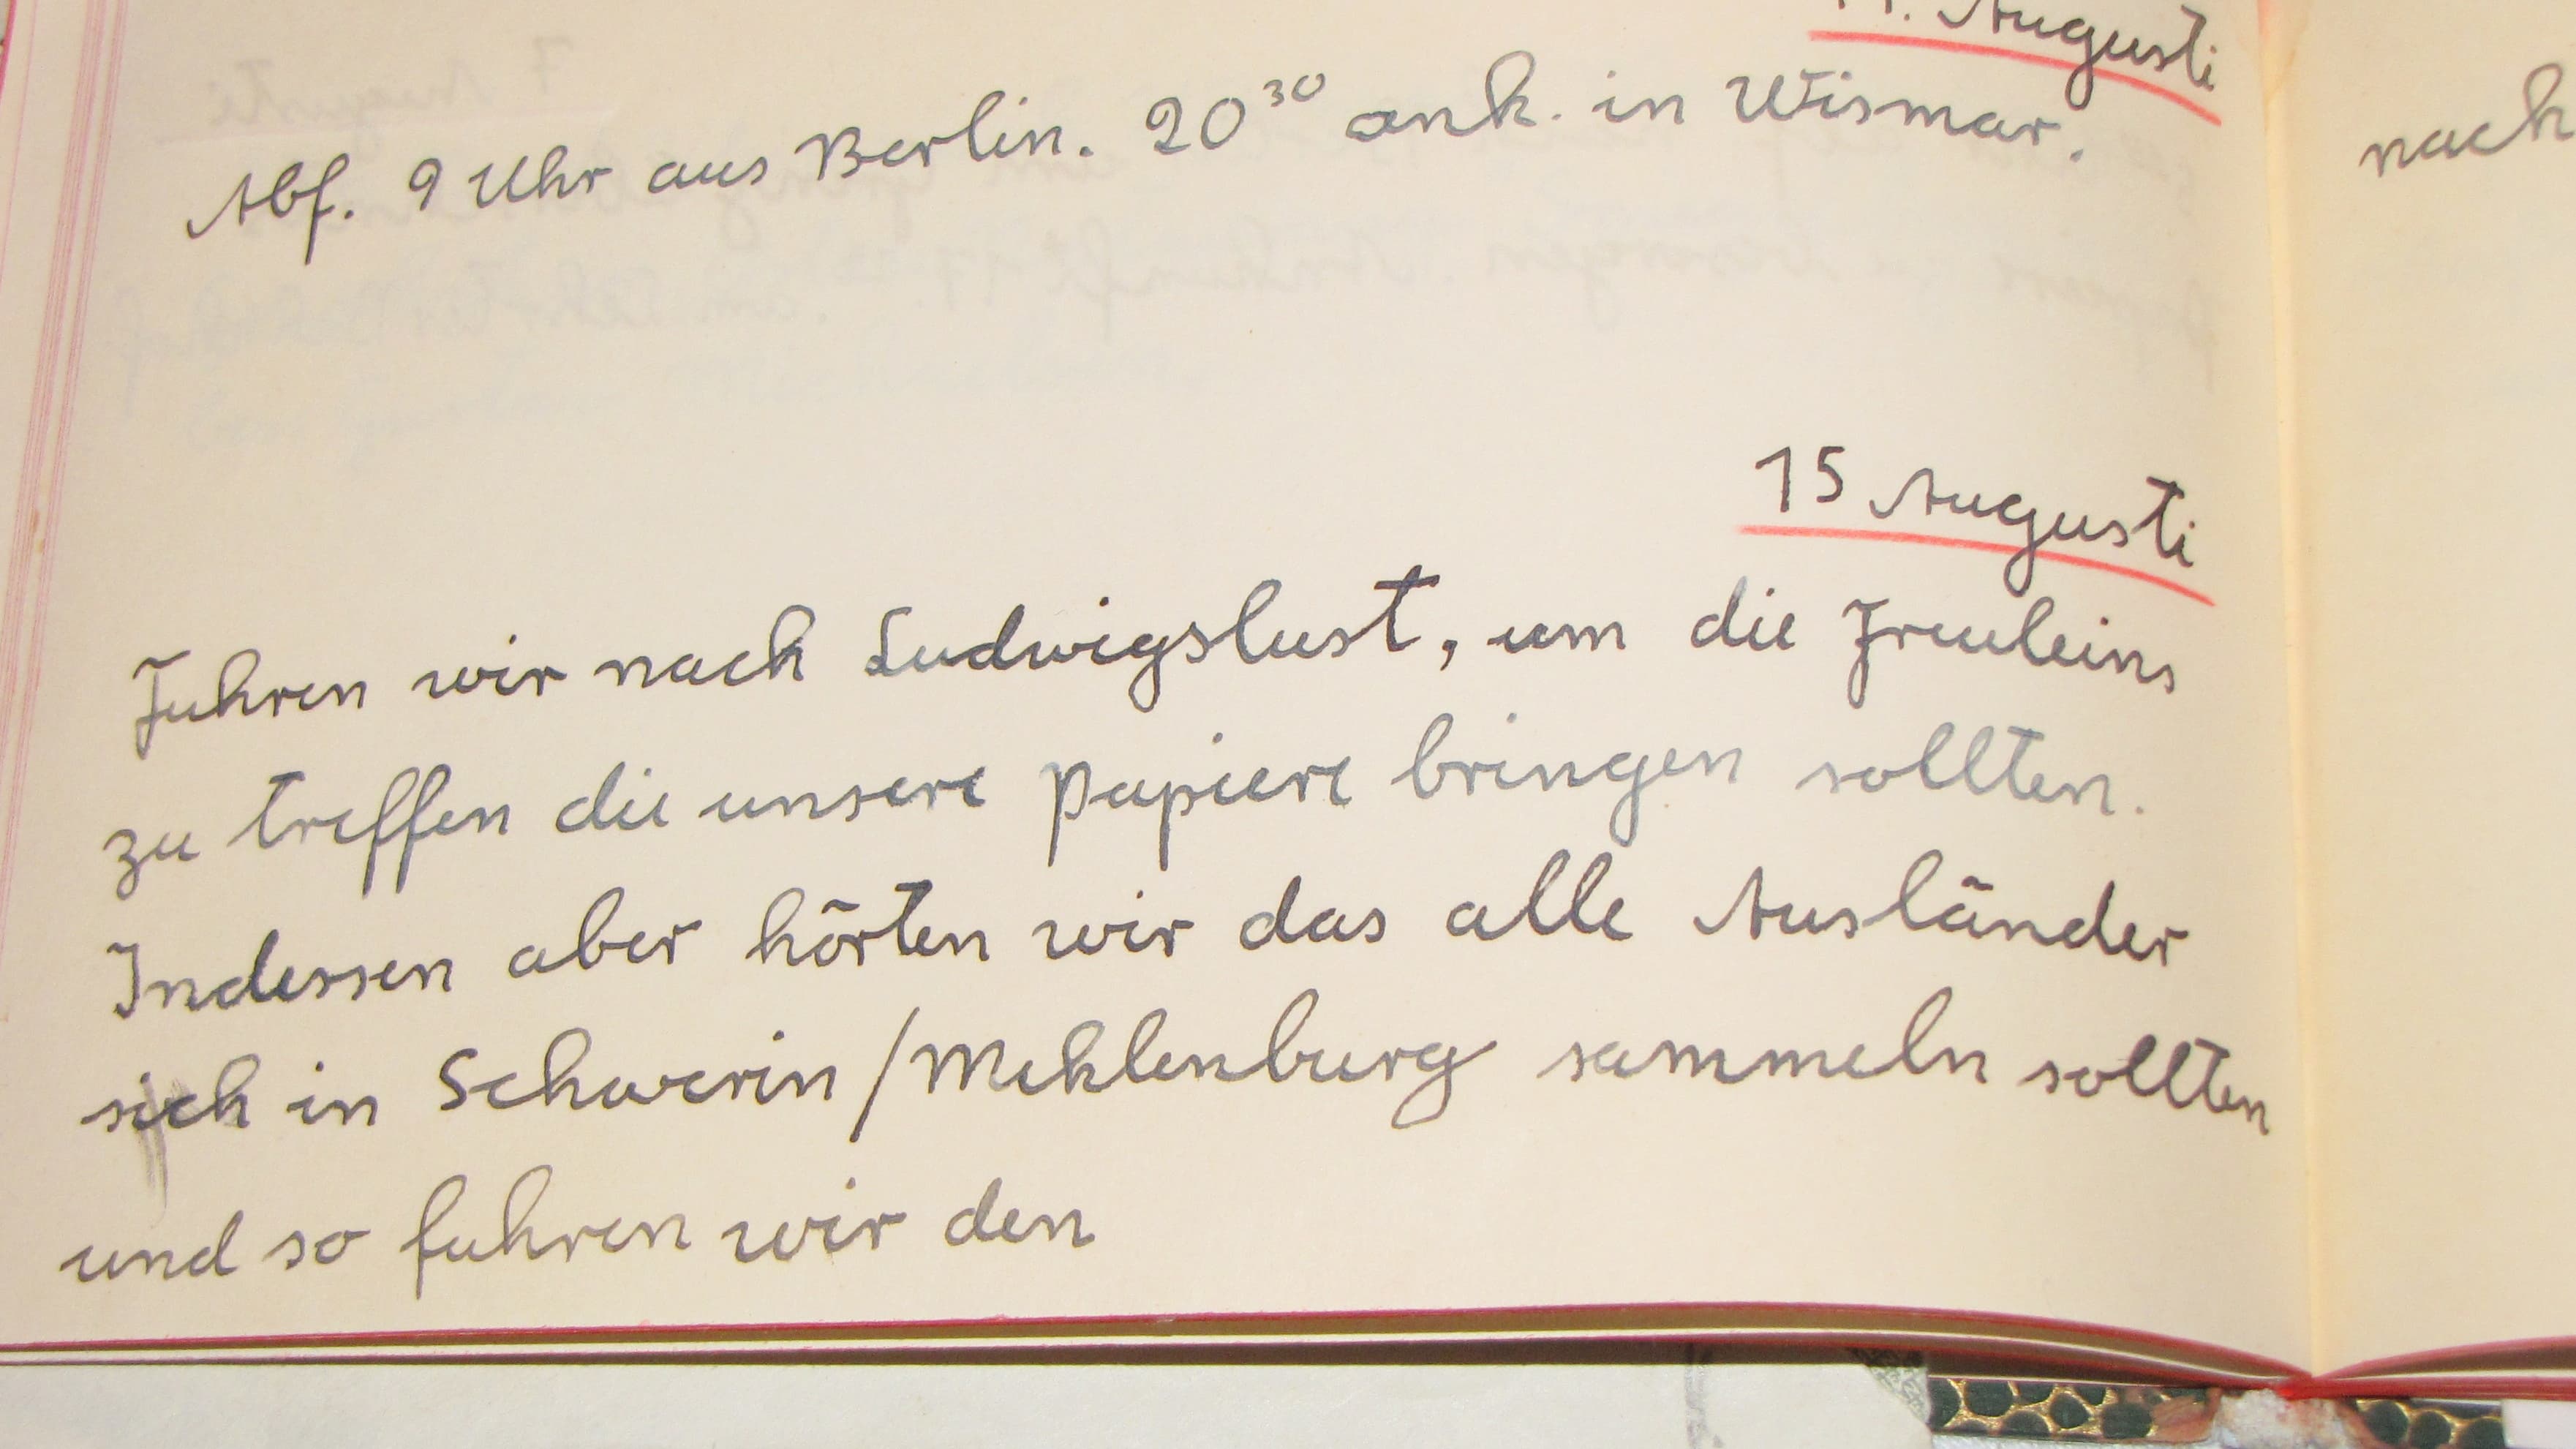 Augusti
Abf. 9 Uhr aus Berlin. 20³⁰ ank. in Wismar.
15 Augusti
Fuhren wir nach Ludwigslust, um die Freuleins
zu treffen die unsere Papiere bringen sollten.
Indessen aber hörten wir das alle Ausländer
sich in Schwerin/Mehklenburg sammeln sollten
und so fuhren wir den
nach